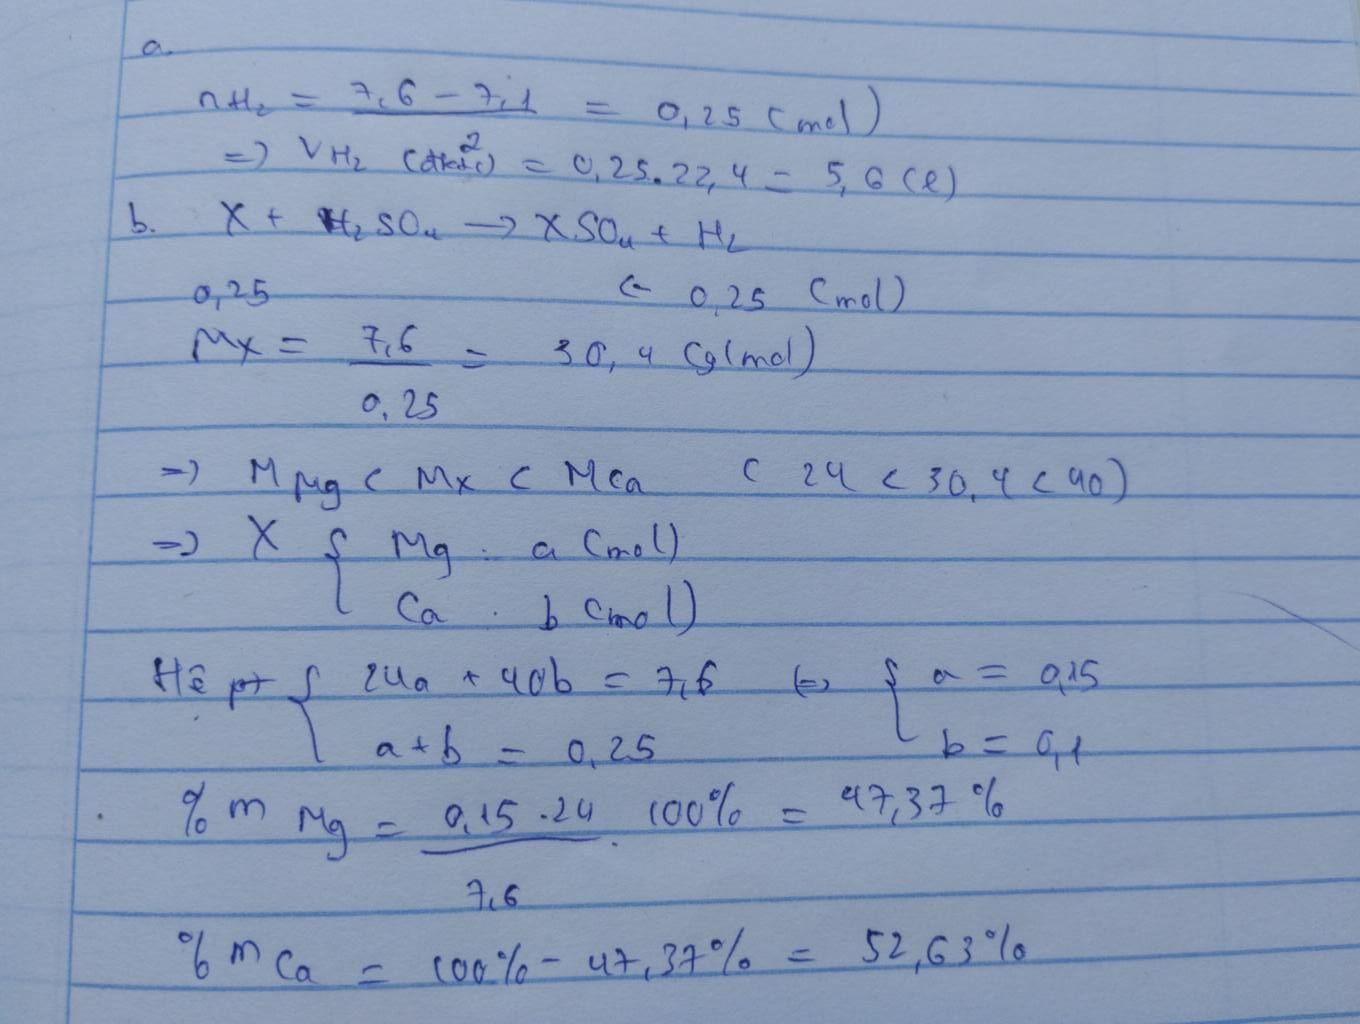 a.
nH₂ = \frac{7,6 - 7,1}{2} = 0,25 (mol)
=> VH₂ (đktc) = 0,25.22,4 = 5,6 (l)
b. X + H₂SO₄ -> XSO₄ + H₂
0,25 <- 0,25 (mol)
Mx = \frac{7,6}{0,25} = 30,4 (g/mol)
=> M Mg < Mx < M Ca ( 24 < 30,4 < 40)
=> X { Mg : a (mol)
Ca : b (mol)
Hệ pt { 24a + 40b = 7,6 <=> { a = 0,15
a + b = 0,25 b = 0,1
% m Mg = \frac{0,15 .24}{7,6} . 100% = 47,37 %
% m Ca = 100% - 47,37% = 52,63%